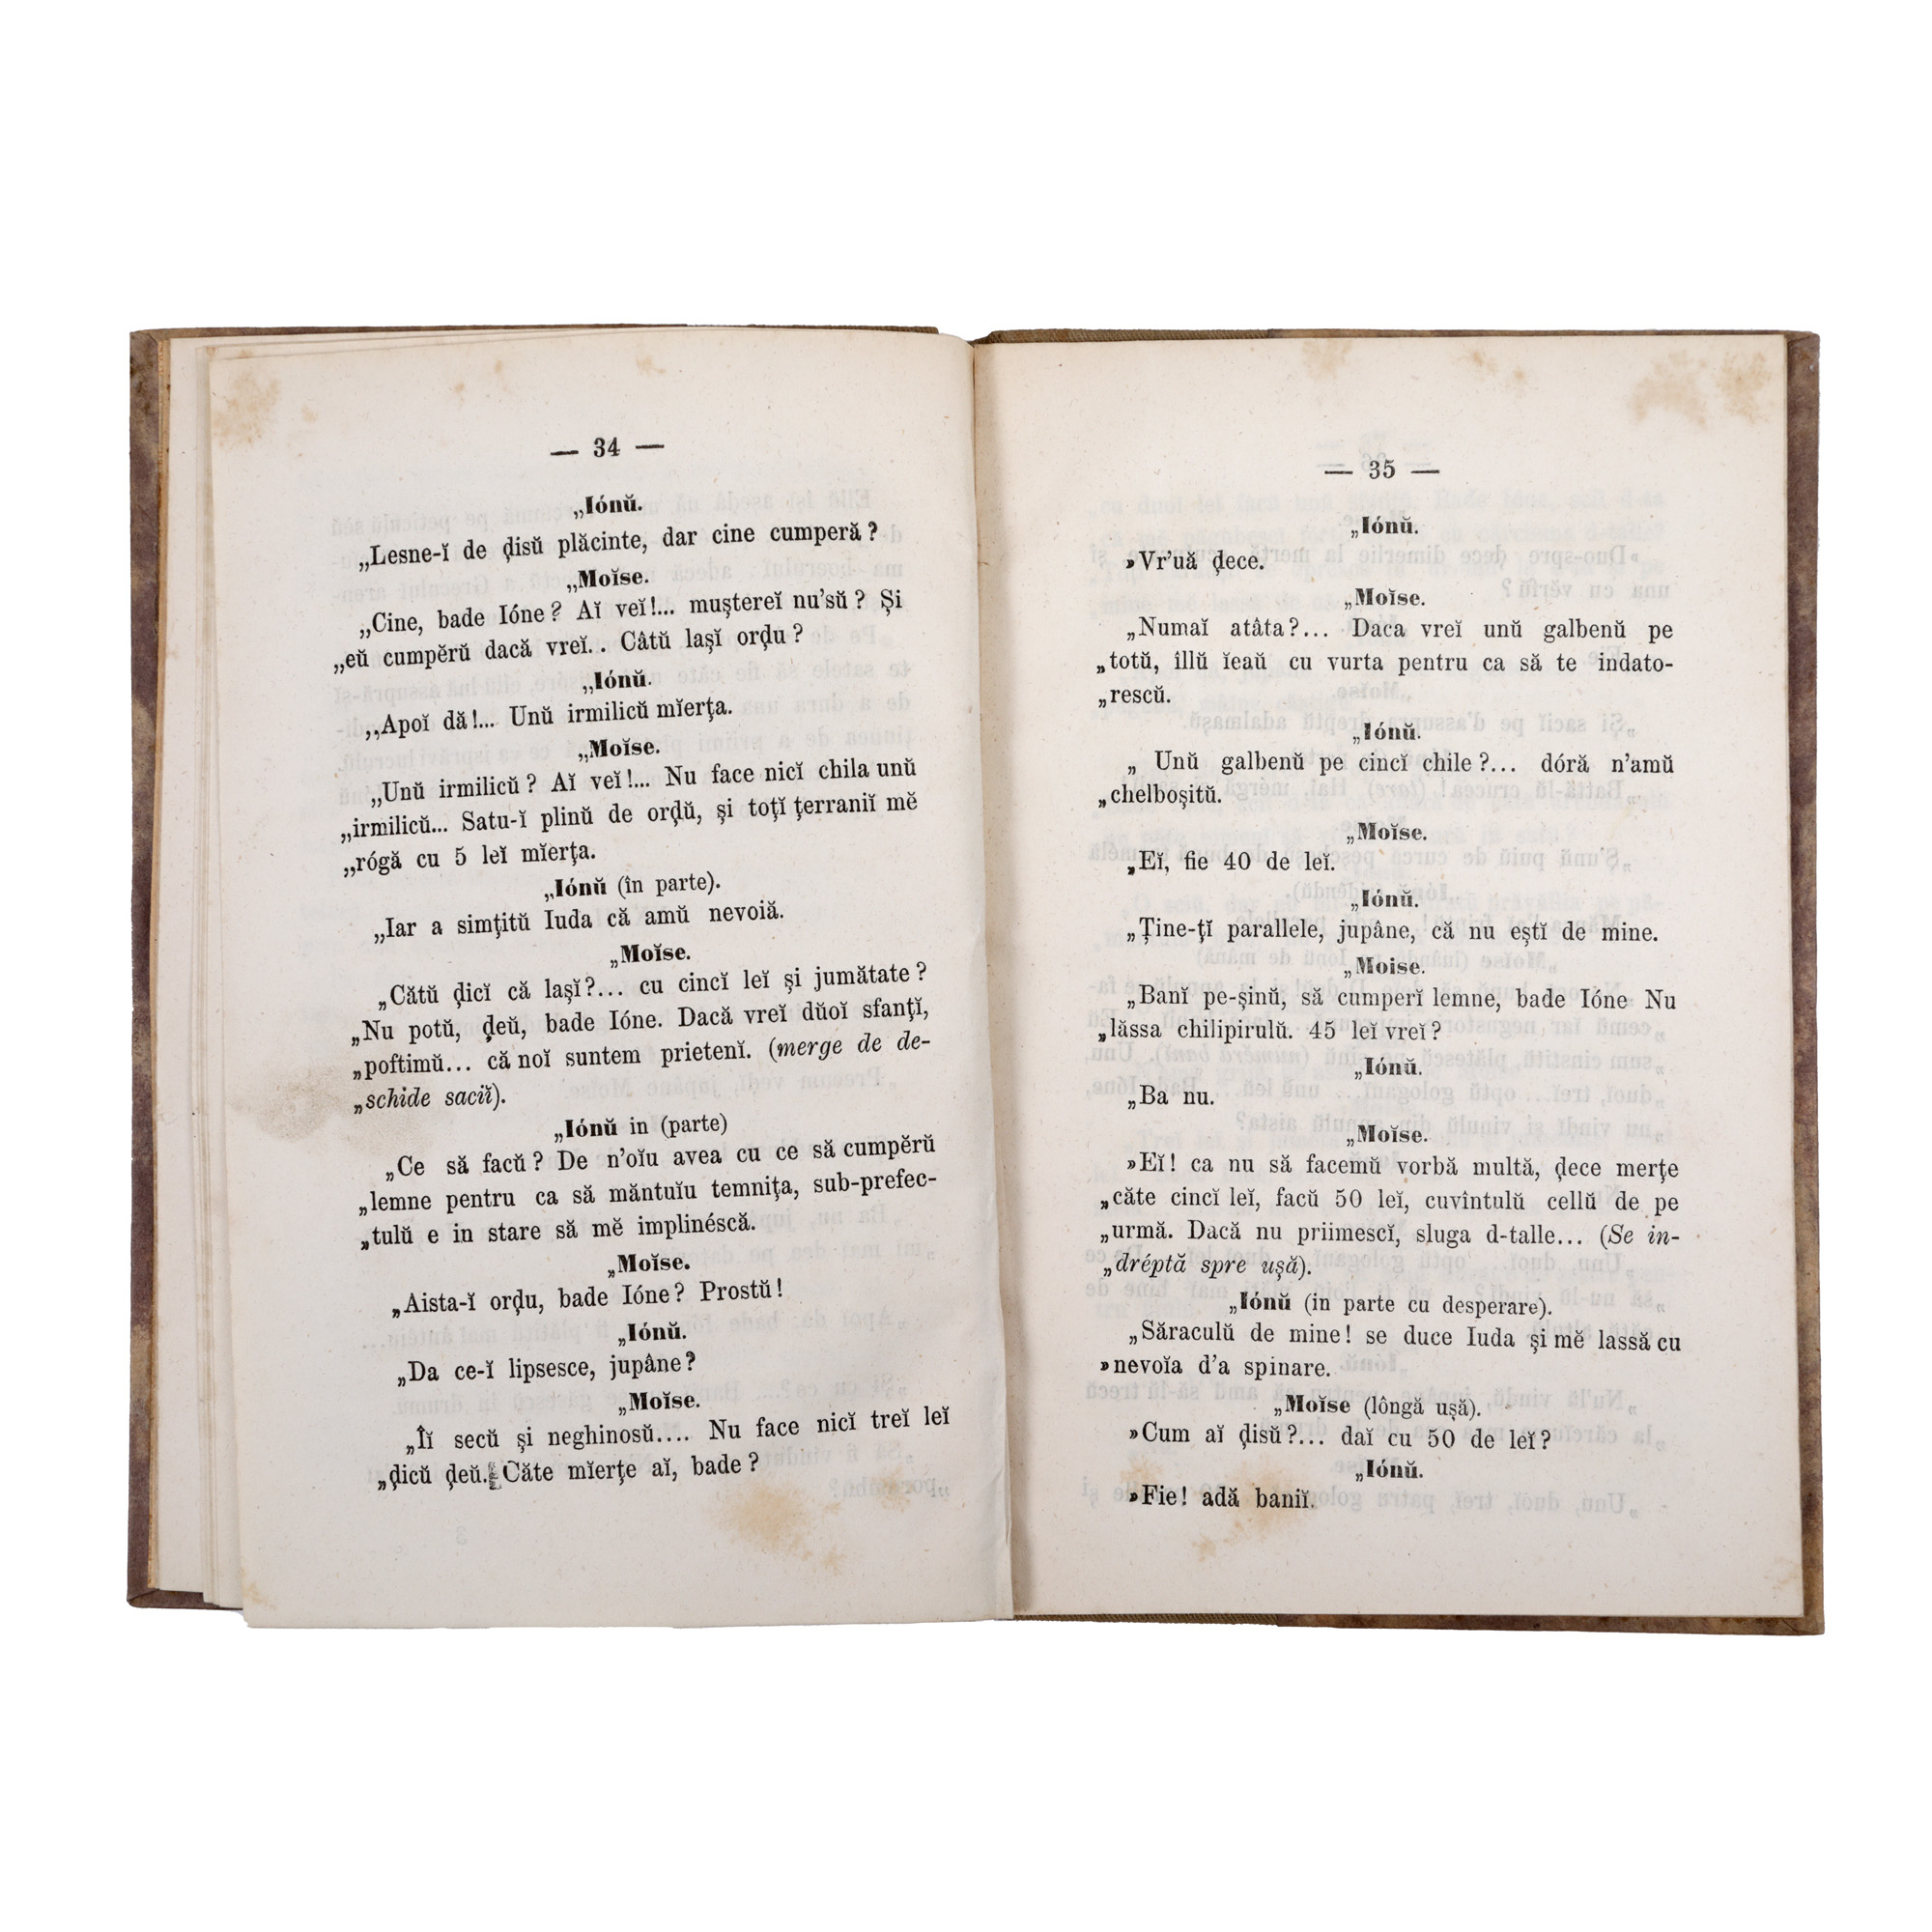 — 34 —
„Iónŭ.
„Lesne-ĭ de ḑisŭ plăcinte, dar cine cumperă?
„Moĭse.
„Cine, bade Ióne? Aĭ veĭ!... muştereĭ nu'sŭ? Şi
„eŭ cumpĕrŭ dacă vreĭ.. Câtŭ laşĭ orḑu?
„Iónŭ.
„Apoĭ dă!... Unŭ irmilicŭ mĭerţa.
„Moĭse.
„Unŭ irmilicŭ? Aĭ veĭ!... Nu face nicĭ chila unŭ
„irmilicŭ... Satu-ĭ plinŭ de orḑŭ, şi toţĭ ţerraniĭ mĕ
„rógă cu 5 leĭ mĭerţa.
„Iónŭ (în parte).
„Iar a simţitŭ Iuda că amŭ nevoiă.
„Moĭse.
„Cătŭ ḑicĭ că laşĭ?... cu cincĭ leĭ şi jumătate?
„Nu potŭ, ḑeŭ, bade Ióne. Dacă vreĭ dŭoĭ sfanţĭ,
„poftimŭ... că noĭ suntem prietenĭ. (merge de de-
„schide saciĭ).
„Iónŭ in (parte)
„Ce să facŭ? De n'oĭu avea cu ce să cumpĕrŭ
„lemne pentru ca să măntuĭu temniţa, sub-prefec-
„tulŭ e in stare să mĕ implinéscă.
„Moĭse.
„Aista-ĭ orḑu, bade Ióne? Prostŭ!
„Iónŭ.
„Da ce-ĭ lipsesce, jupâne?
„Moĭse.
„Îĭ secŭ şi neghinosŭ.... Nu face nicĭ treĭ leĭ
„ḑicŭ ḑeŭ. Căte mĭerţe aĭ, bade?
— 35 —
„Iónŭ.
»Vr'uă ḑece.
„Moĭse.
„Numaĭ atâta?... Daca vreĭ unŭ galbenŭ pe
„totŭ, îllŭ ĭeaŭ cu vurta pentru ca să te indato-
„rescŭ.
„Iónŭ.
„ Unŭ galbenŭ pe cincĭ chile?... dóră n'amŭ
„chelboşitŭ.
„Moĭse.
„Eĭ, fie 40 de leĭ.
„Iónŭ.
„Ţine-ţĭ parallele, jupâne, că nu eştĭ de mine.
„Moise.
„Banĭ pe-şinŭ, să cumperĭ lemne, bade Ióne Nu
„lăssa chilipirulŭ. 45 leĭ vreĭ?
„Iónŭ.
„Ba nu.
„Moĭse.
»Eĭ! ca nu să facemŭ vorbă multă, ḑece merţe
„căte cincĭ leĭ, facŭ 50 leĭ, cuvîntulŭ cellŭ de pe
„urmă. Dacă nu priimescĭ, sluga d-talle... (Se in-
„dréptă spre uşă).
„Iónŭ (in parte cu desperare).
„Săraculŭ de mine! se duce Iuda şi mĕ lassă cu
»nevoĭa d'a spinare.
„Moĭse (lôngă uşă).
»Cum aĭ ḑisŭ?... daĭ cu 50 de leĭ?
„Iónŭ.
»Fie! adă baniĭ.